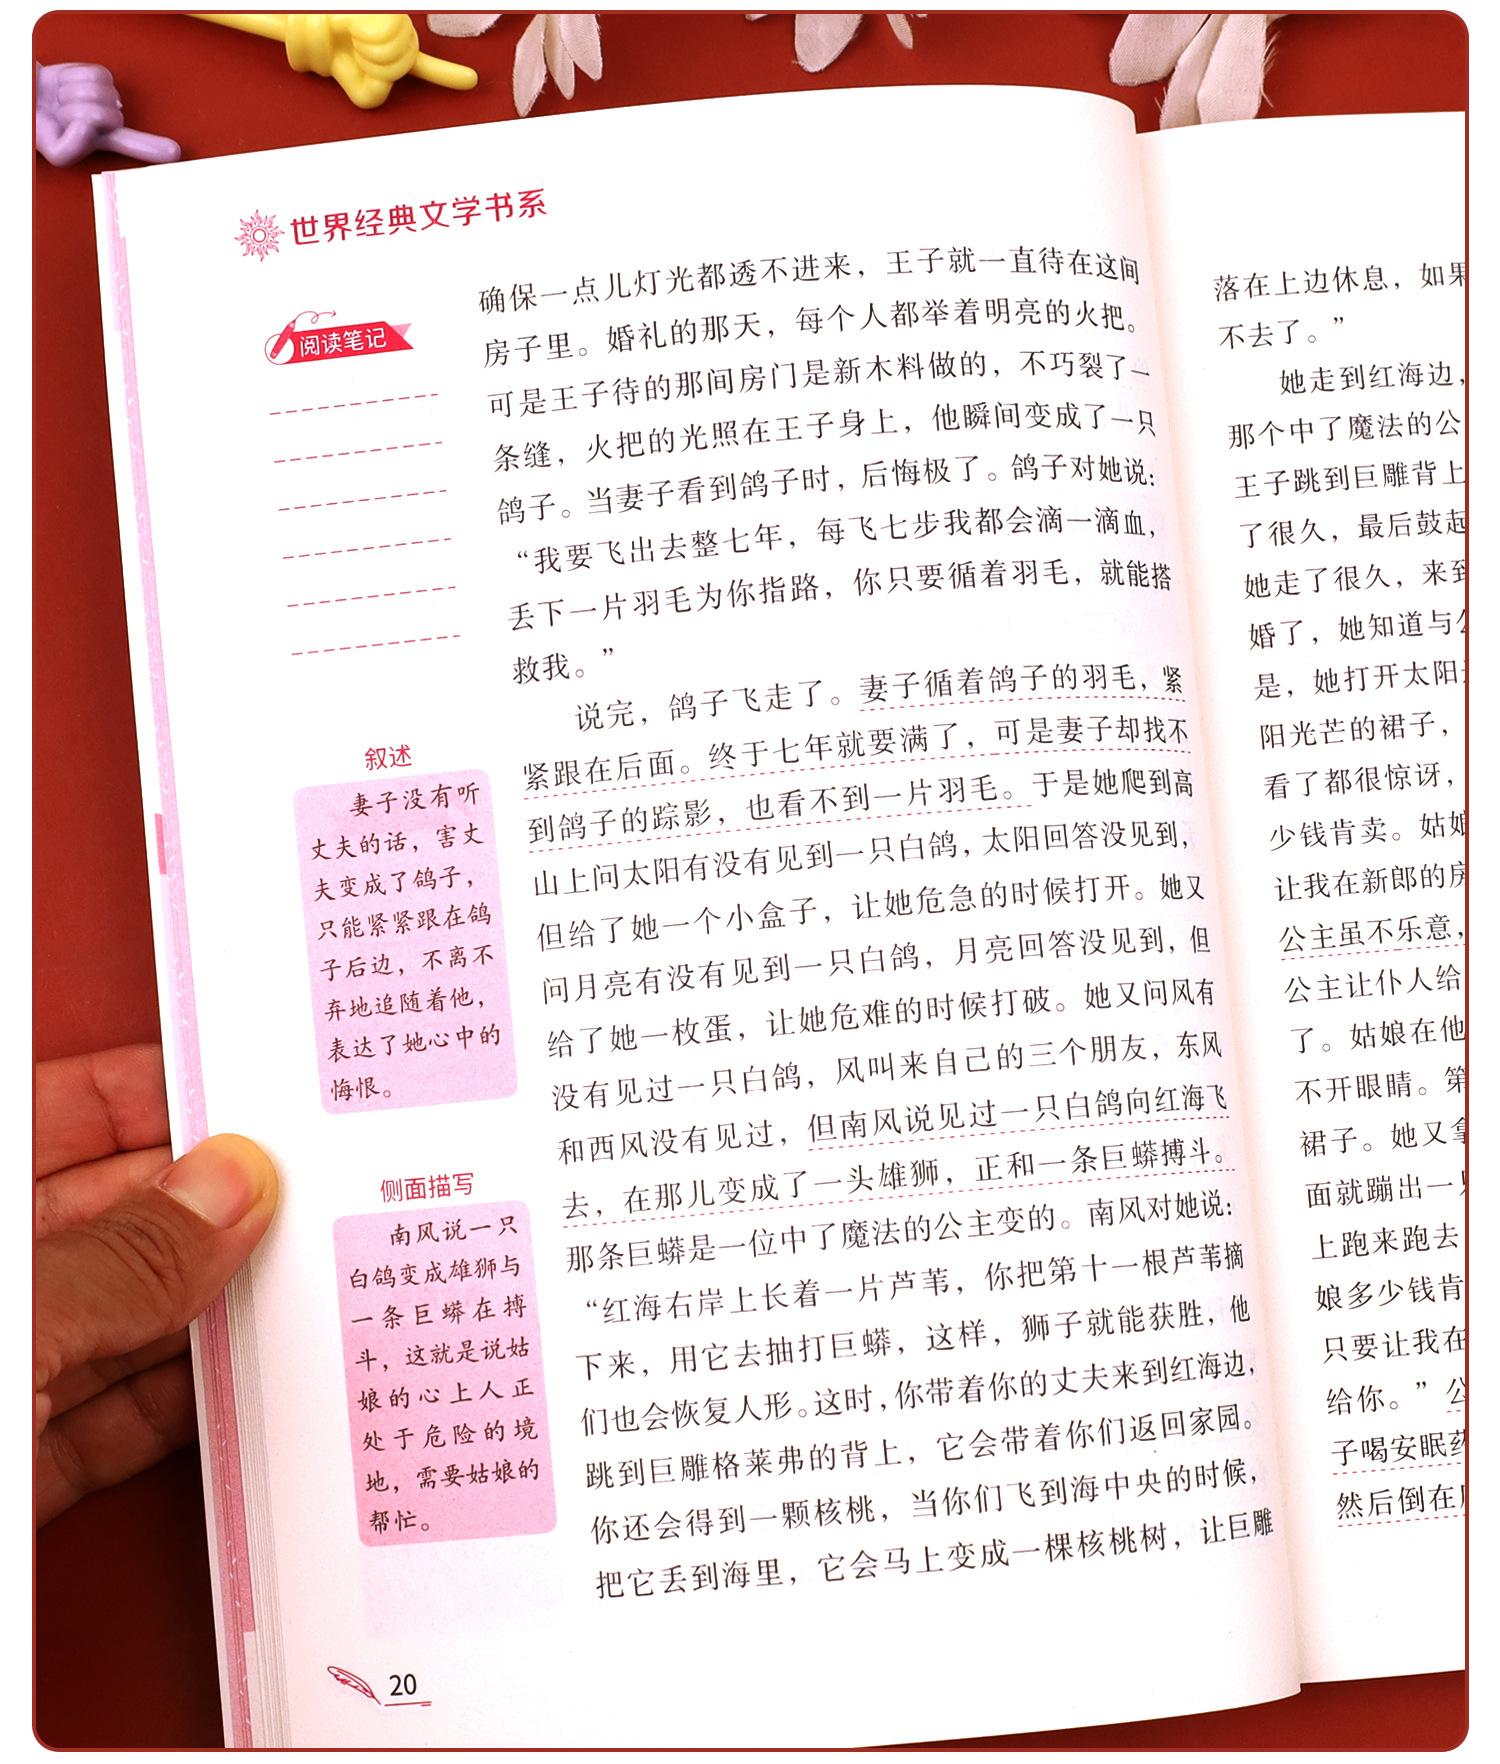 世界经典文学书系
阅读笔记
确保一点儿灯光都透不进来，王子就一直待在这间
房子里。婚礼的那天，每个人都举着明亮的火把。
可是王子待的那间房门是新木料做的，不巧裂了一
条缝，火把的光照在王子身上，他瞬间变成了一只
鸽子。当妻子看到鸽子时，后悔极了。鸽子对她说：
“我要飞出去整七年，每飞七步我都会滴一滴血，
丢下一片羽毛为你指路，你只要循着羽毛，就能搭
救我。”
说完，鸽子飞走了。妻子循着鸽子的羽毛，紧
紧跟在后面。终于七年就要满了，可是妻子却找不
到鸽子的踪影，也看不到一片羽毛。于是她爬到高
山上问太阳有没有见到一只白鸽，太阳回答没见到，
但给了她一个小盒子，让她危急的时候打开。她又
问月亮有没有见到一只白鸽，月亮回答没见到，但
给了她一枚蛋，让她危难的时候打破。她又问风有
没有见过一只白鸽，风叫来自己的三个朋友，东风
和西风没有见过，但南风说见过一只白鸽向红海飞
去，在那儿变成了一头雄狮，正和一条巨蟒搏斗。
那条巨蟒是一位中了魔法的公主变的。南风对她说：
“红海右岸上长着一片芦苇，你把第十一根芦苇摘
下来，用它去抽打巨蟒，这样，狮子就能获胜，他
们也会恢复人形。这时，你带着你的丈夫来到红海边，
跳到巨雕格莱弗的背上，它会带着你们返回家园。
你还会得到一颗核桃，当你们飞到海中央的时候，
把它丢到海里，它会马上变成一棵核桃树，让巨雕
叙述
妻子没有听
丈夫的话，害丈
夫变成了鸽子，
只能紧紧跟在鸽
子后边，不离不
弃地追随着他，
表达了她心中的
悔恨。
侧面描写
南风说一只
白鸽变成雄狮与
一条巨蟒在搏
斗，这就是说姑
娘的心上人正
处于危险的境
地，需要姑娘的
帮忙。
20
落在上边休息，如果
不去了。”
她走到红海边，
那个中了魔法的公
王子跳到巨雕背上
了很久，最后鼓起
她走了很久，来到
婚了，她知道与公
是，她打开太阳
阳光芒的裙子，
看了都很惊讶，
少钱肯卖。姑娘
让我在新郎的房
公主虽不乐意，
公主让仆人给
了。姑娘在他
不开眼睛。第
裙子。她又拿
面就蹦出一只
上跑来跑去
娘多少钱肯
只要让我在
给你。”公
子喝安眠药
然后倒在